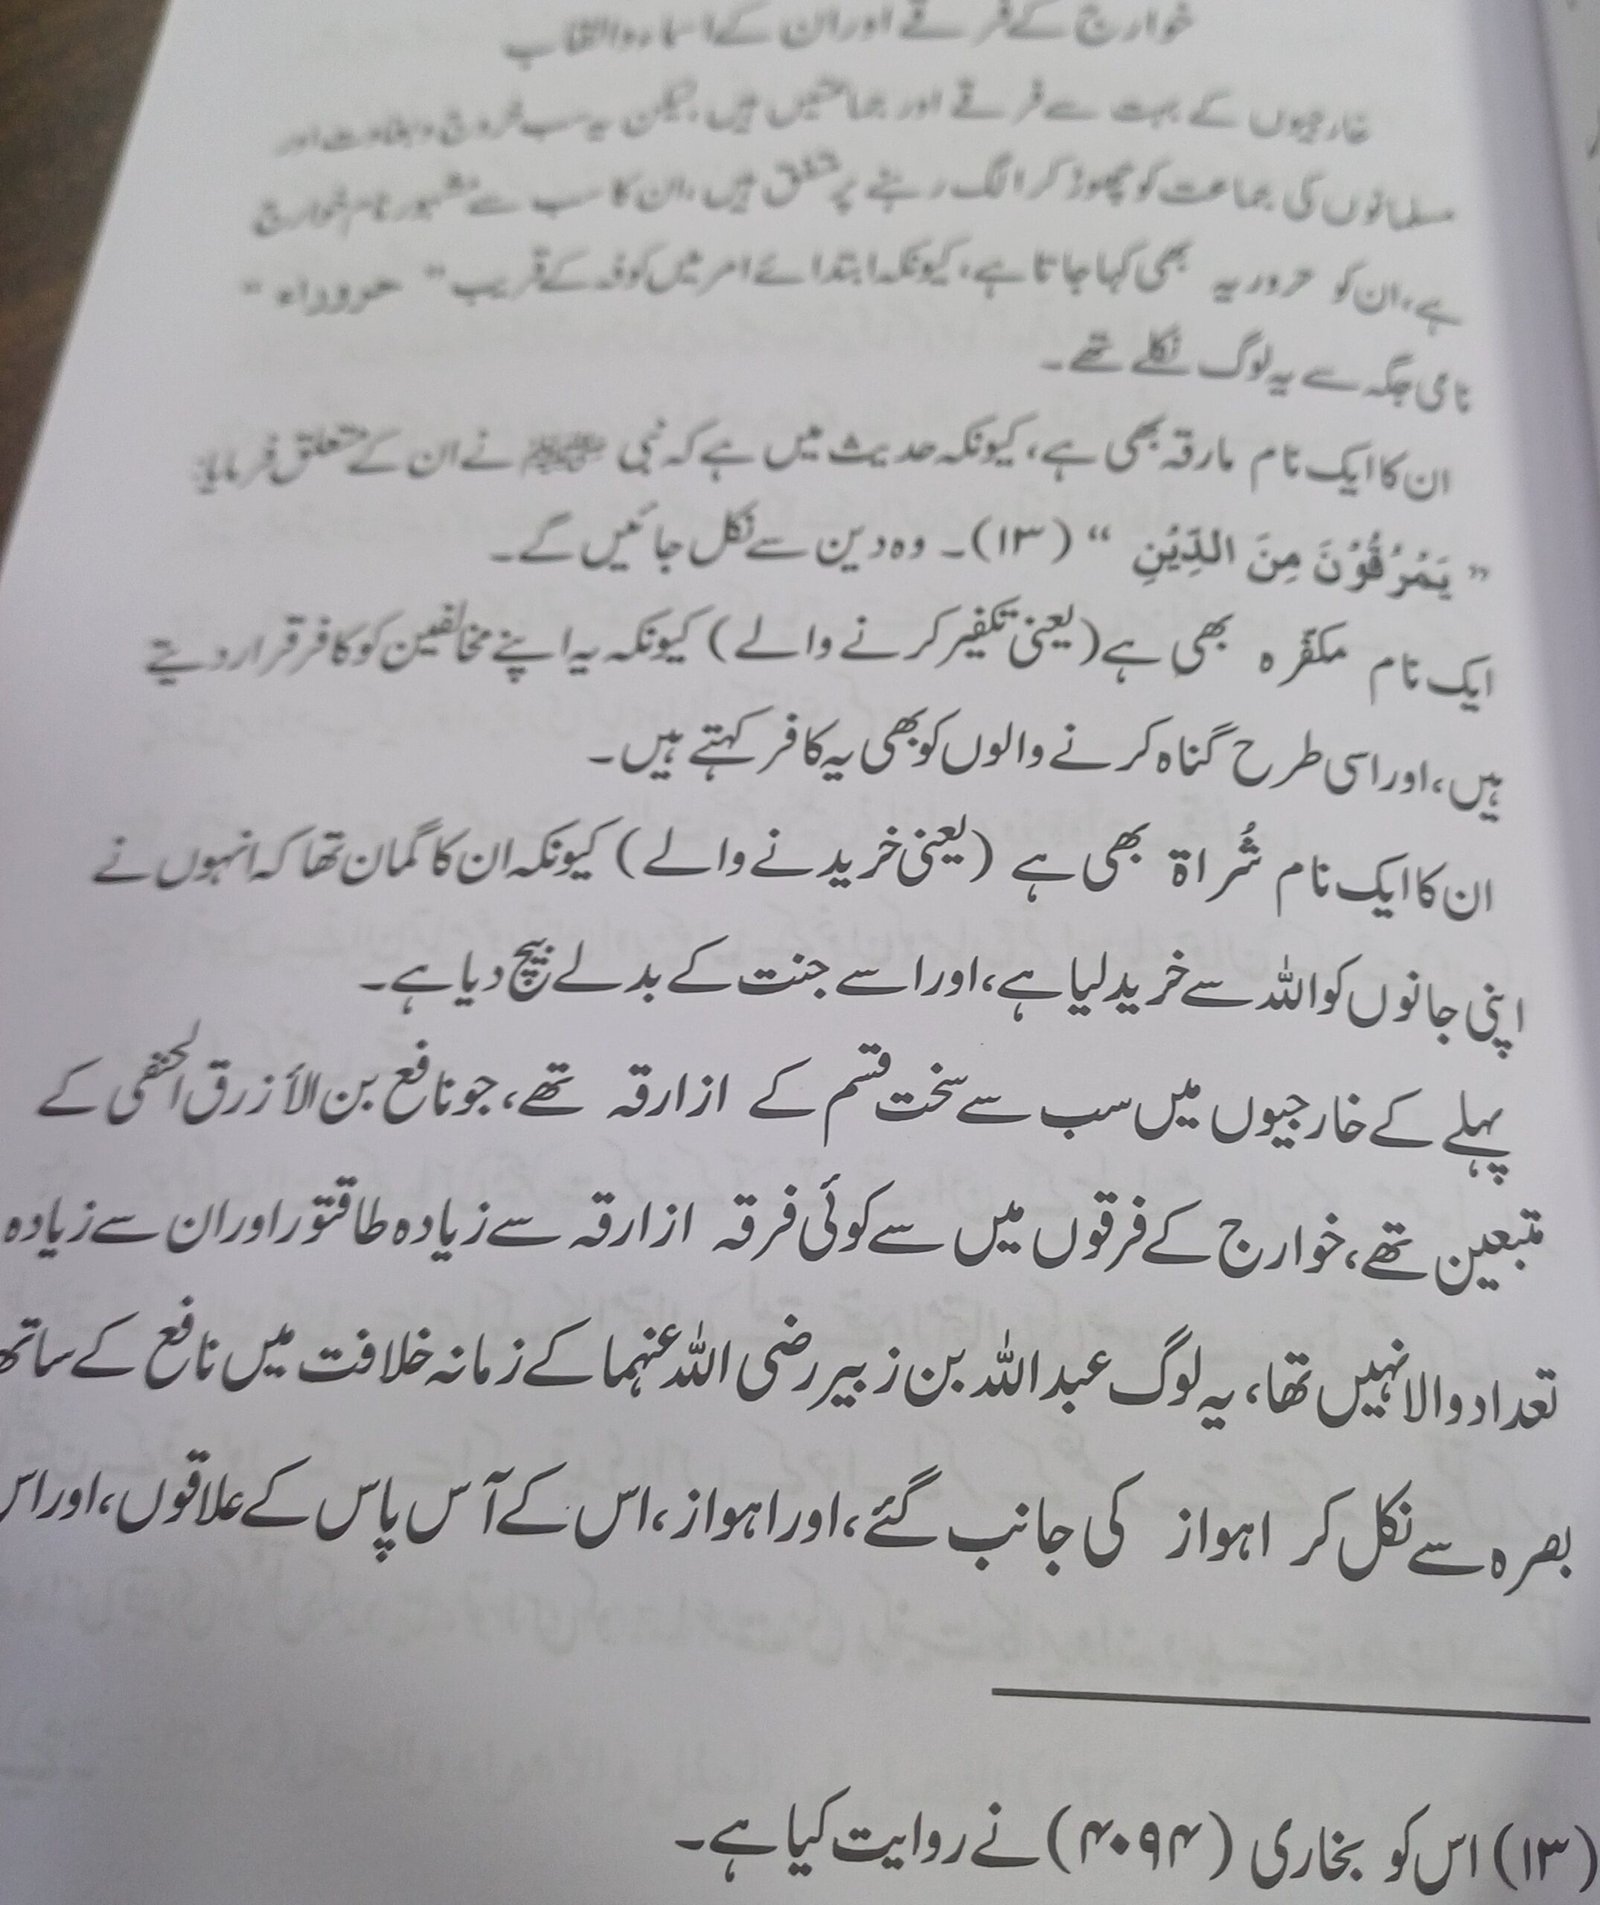 خوارج کے فرقے اور ان کے اسماء و القاب
خارجیوں کے بہت سے فرقے اور جماعتیں ہیں، لیکن یہ سب خروج و بغاوت اور
مسلمانوں کی جماعت کو چھوڑ کر الگ رہنے پر متفق ہیں، ان کا سب سے مشہور نام خوارج
ہے، ان کو حروریہ بھی کہا جاتا ہے، کیونکہ ابتدائے امر میں کوفہ کے قریب " حروراء "
نامی جگہ سے یہ لوگ نکلے تھے۔
ان کا ایک نام مارقہ بھی ہے، کیونکہ حدیث میں ہے کہ نبی ﷺ نے ان کے متعلق فرمایا:
" یَمْرُقُوْنَ مِنَ الدِّیْنِ " (۱۳)۔ وہ دین سے نکل جائیں گے۔
ایک نام مکفّرہ بھی ہے (یعنی تکفیر کرنے والے) کیونکہ یہ اپنے مخالفین کو کافر قرار دیتے
ہیں، اور اسی طرح گناہ کرنے والوں کو بھی یہ کافر کہتے ہیں۔
ان کا ایک نام شُراۃ بھی ہے (یعنی خریدنے والے) کیونکہ ان کا گمان تھا کہ انہوں نے
اپنی جانوں کو اللہ سے خرید لیا ہے، اور اسے جنت کے بدلے بیچ دیا ہے۔
پہلے کے خارجیوں میں سب سے سخت قسم کے ازارقہ تھے، جو نافع بن الأزرق الحنفی کے
متبعین تھے، خوارج کے فرقوں میں سے کوئی فرقہ ازارقہ سے زیادہ طاقتور اور ان سے زیادہ
تعداد والا نہیں تھا، یہ لوگ عبد اللہ بن زبیر رضی اللہ عنہما کے زمانہ خلافت میں نافع کے ساتھ
بصرہ سے نکل کر اہواز کی جانب گئے، اور اہواز، اس کے آس پاس کے علاقوں، اور اس
(۱۳) اس کو بخاری (۴۰۹۴) نے روایت کیا ہے۔